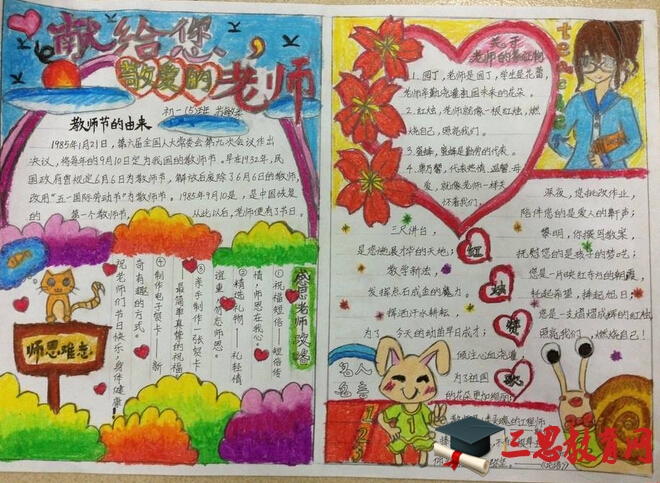 献给您,
敬爱的老师
初一(5)班
教师节的由来
1985年1月21日,第六届全国人大常委会第九次会议作出
决议,将每年的9月10日定为我国的教师节。早在1932年,民
国政府曾规定6月6日为教师节,解放后废除了6月6日的教师节,
改用"五一国际劳动节"为教师节。1985年9月10是,是中国恢复
的 第一个教师节, 从此以后,老师便有了节日。
感恩老师
①祝福短信——短信传
情,师恩在我心。
②精选礼物——礼轻情
谊重,勿忘师恩。
③亲手制作一张贺卡——
最简单真挚的祝福
④制作电子贺卡——新
奇有趣的方式。
祝老师们节日快乐,身体健康!
师恩难忘
关于
老师的象征物
1.园丁,老师是园丁,学生是花蕾,
老师辛勤浇灌祖国未来的花朵。
2.红烛,老师就像一根红烛,燃
烧自己,照亮我们。
3.蜜蜂,蜜蜂是勤劳的代表。
4.康乃馨,代表热情、温馨、母
爱,就像老师一样关
怀着我们。
teacher
红烛赞歌
三尺讲台,
是您施展才华的天地;
教学新法,
发挥点石成金的魔力。
挥洒汗水耕耘,
为了 今天的幼苗早日成才;
倾注心血浇灌,
为了祖国
的花朵更加绚丽;
深夜,您批改作业,
陪伴您的是爱人的鼾声;
黎明,你撰写教案,
抚慰您的是孩子的梦呓;
您是一片映红方的朝霞
托起希望,捧起旭日,
您是一支熠熠成辉的红烛
照亮我们,燃烧自己!
名人
名言
1
2
3
三思教育网